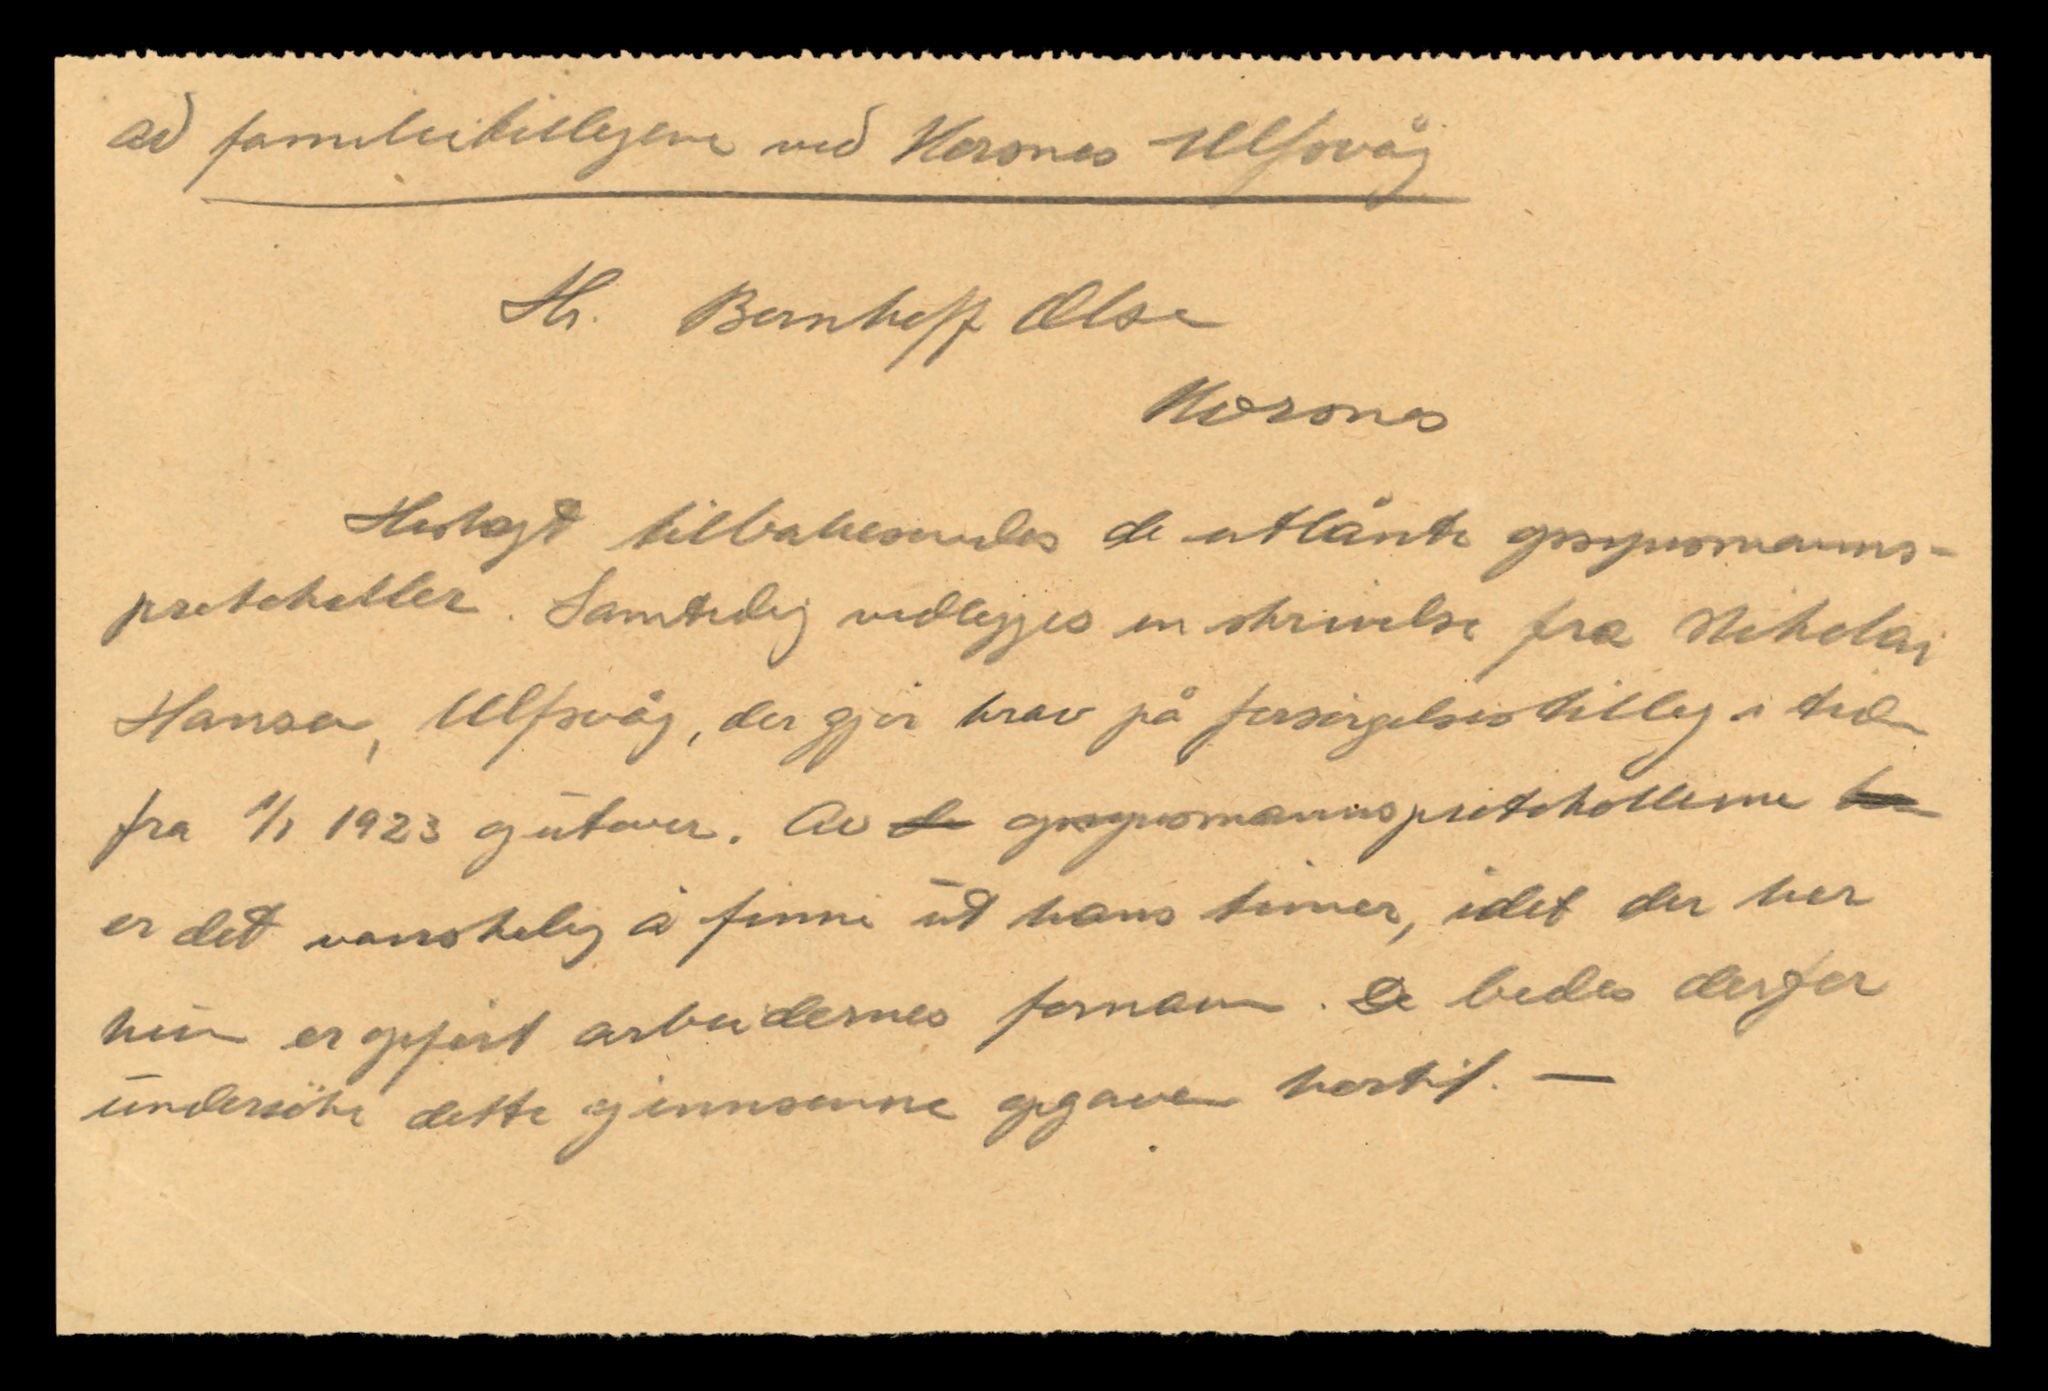 ad familietilleggene ved Korsnes Ulfsvåg
Hr. Bernhoff Olsen
Korsnes
Herlagt tilbakesendes de utlånte opsynsmanns-
protokoller. Samtidig vedlegges en skrivelse fra Nikolai
Hansen, Ulfsvåg, der gjør krav på forsørgelsestillegg i tiden
fra 1/1 1923 og utover. Av de opsynsmannsprotokollerne
er det vanskelig å finne ut hans timer, idet der her
kun er opført arbeidernes fornavn. De bedes derfor
undersöke dette og innsenne opgaven hertil. —